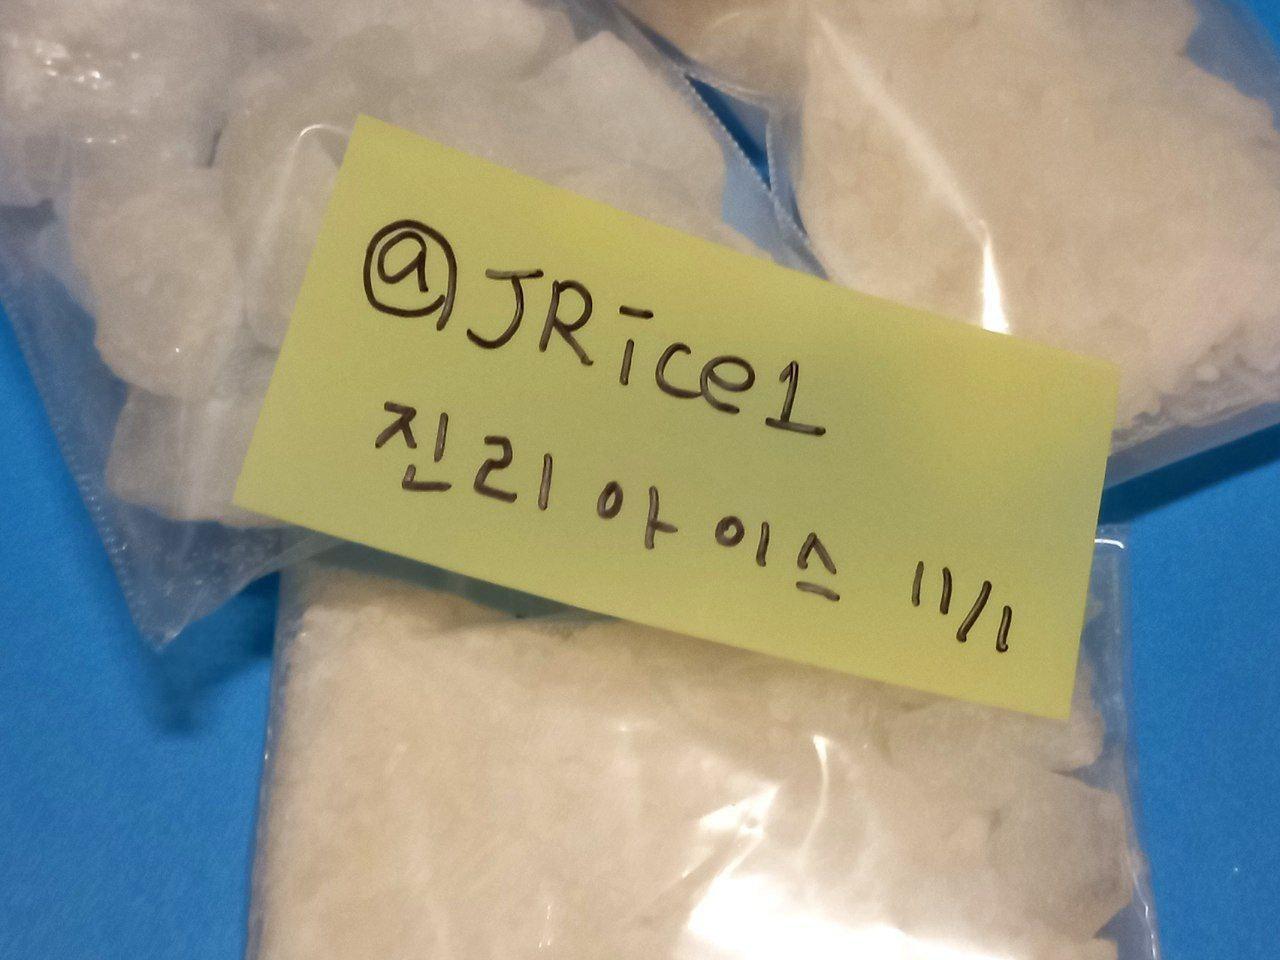 @JRice1
진리아이스 11/1